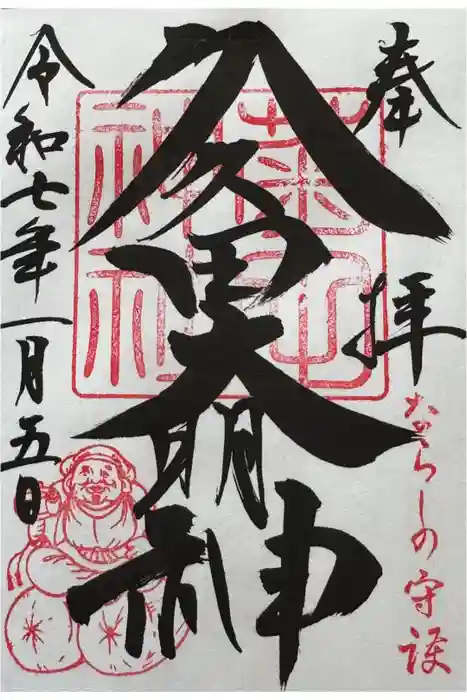 奉拝
ならしの守護
久久田大明神
菊田
神社
令和七年一月五日